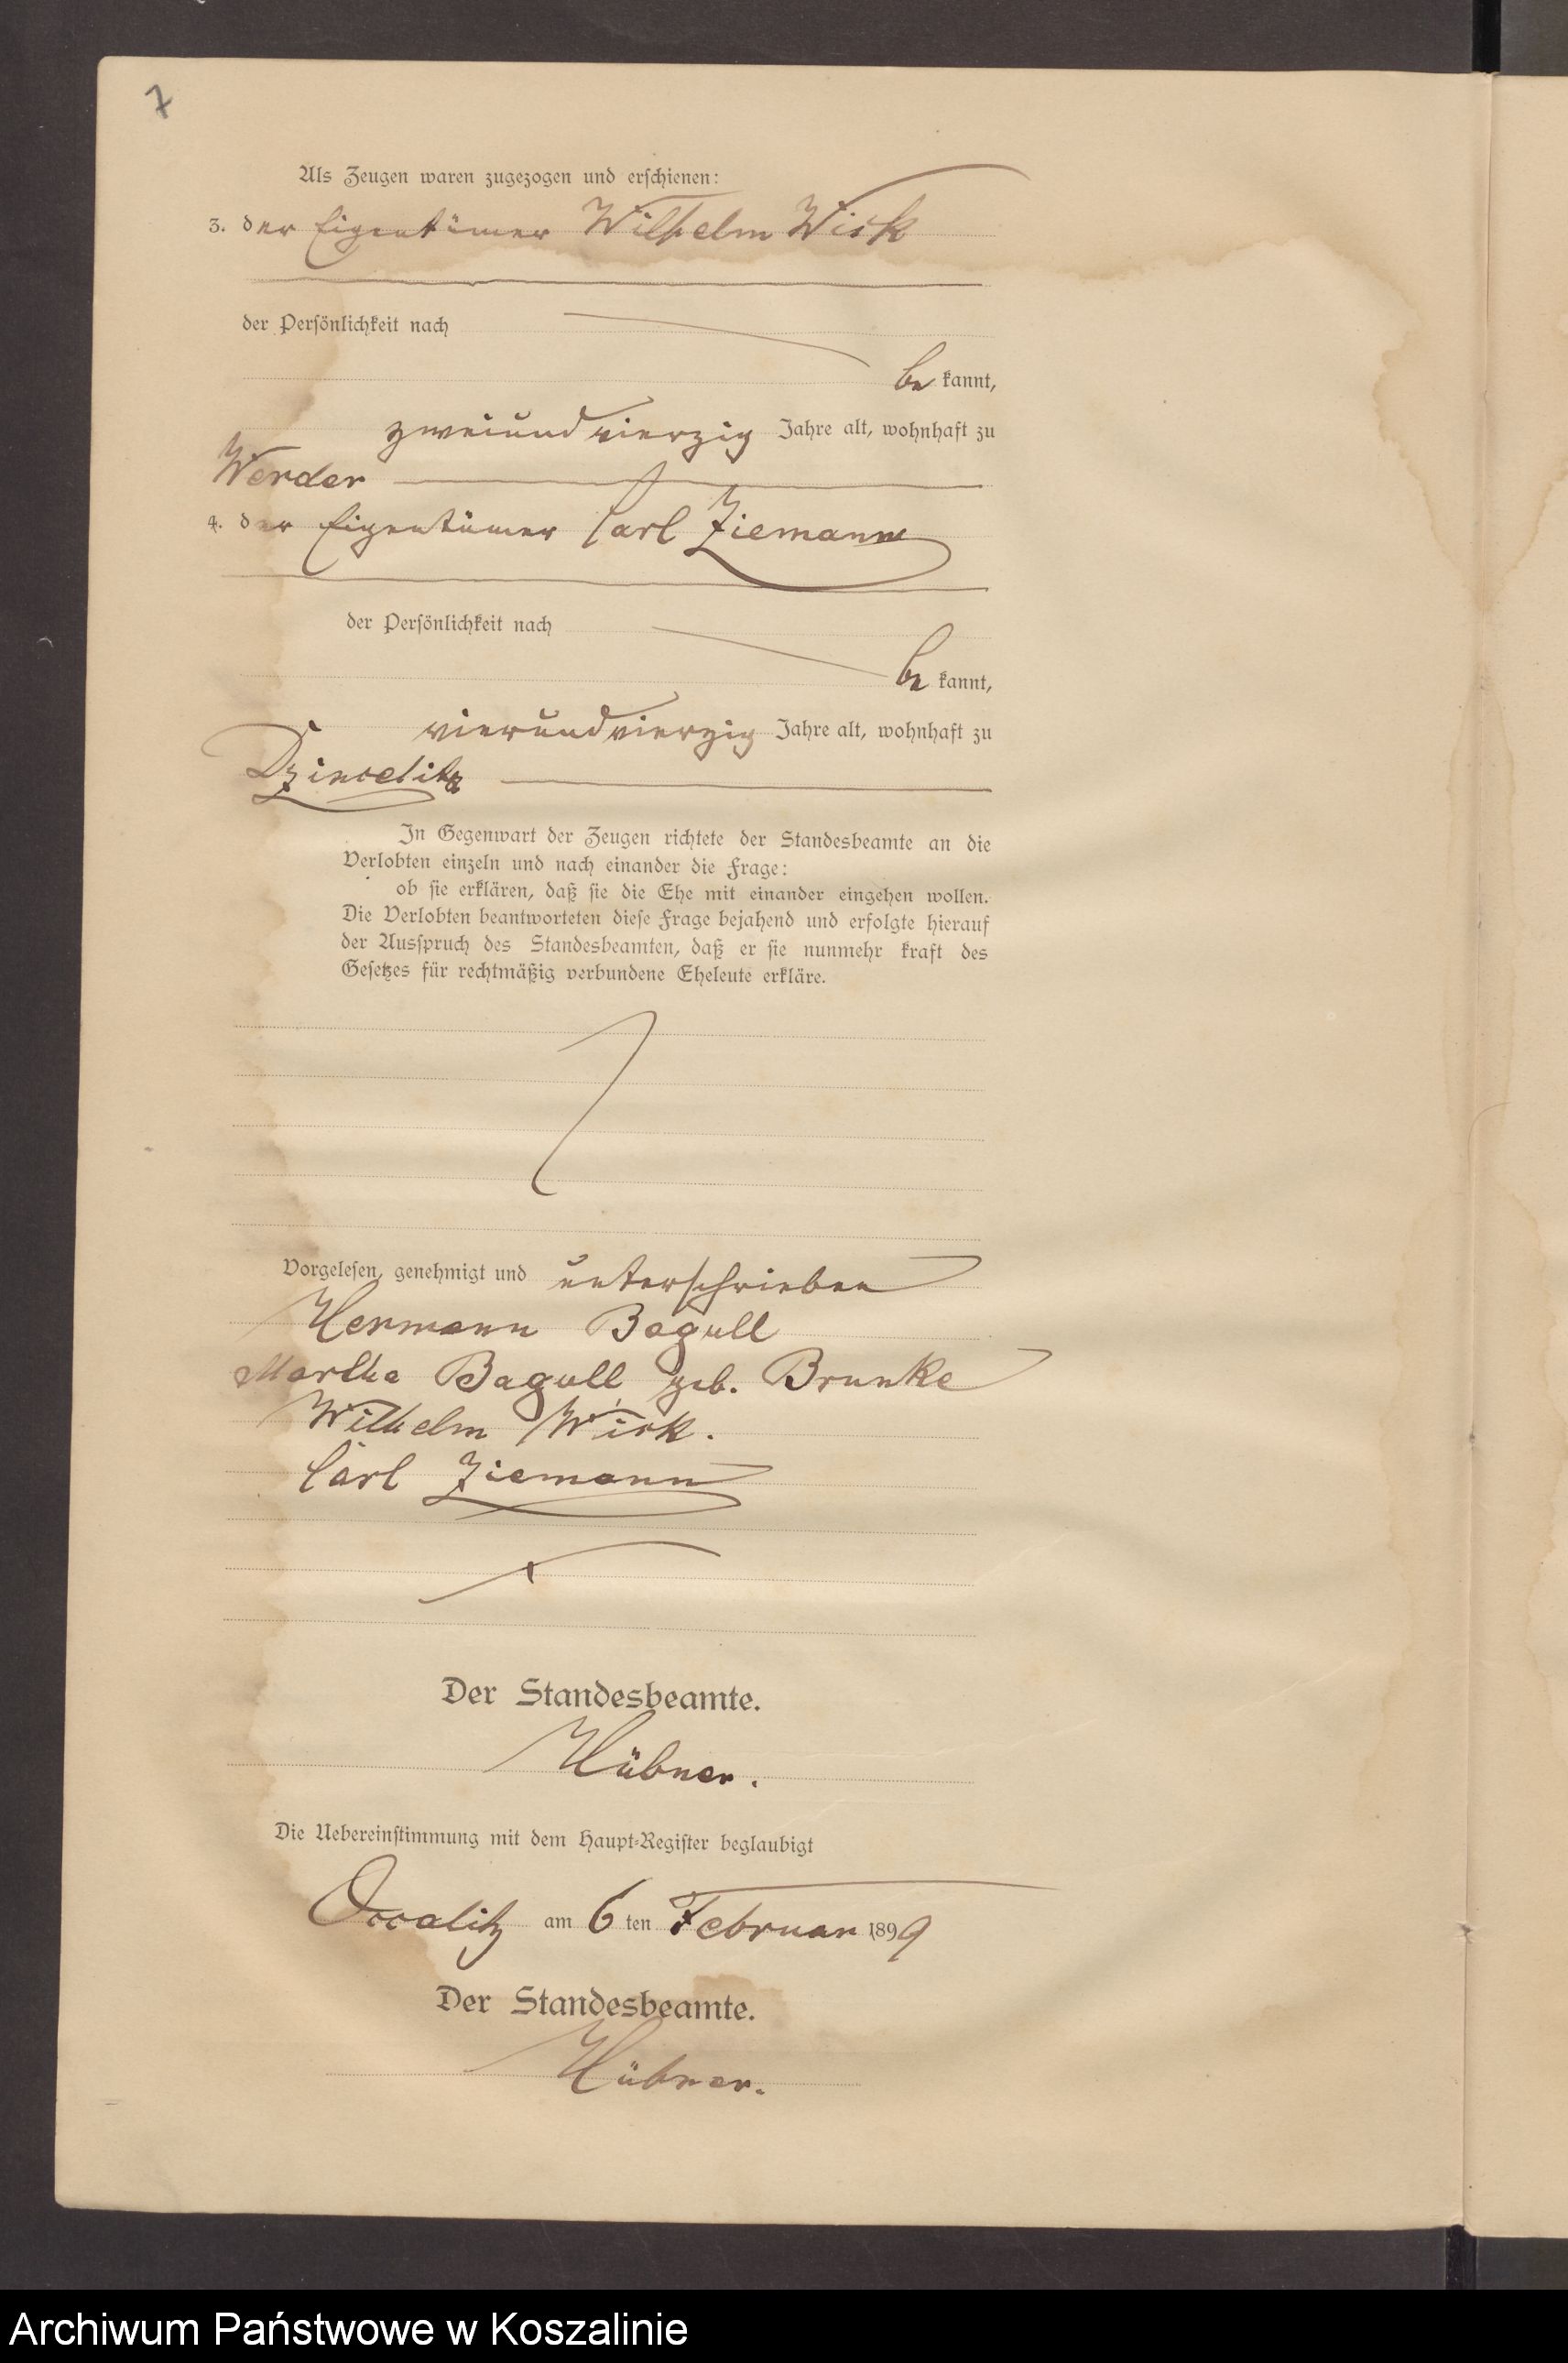 7
Als Zeugen waren zugezogen und erschienen:
3. der Eigentümer Wilhelm Wirk
der Persönlichkeit nach
be kannt,
zweiundvierzig Jahre alt, wohnhaft zu
Werder
4. der Eigentümer Carl Ziemann
der Persönlichkeit nach
be kannt,
vierundvierzig Jahre alt, wohnhaft zu
In Gegenwart der Zeugen richtete der Standesbeamte an die
Verlobten einzeln und nach einander die Frage:
ob sie erklären, daß sie die Ehe mit einander eingehen wollen.
Die Verlobten beantworteten diese Frage bejahend und erfolgte hierauf
der Ausspruch des Standesbeamten, daß er sie nunmehr kraft des
Gesetzes für rechtmäßig verbundene Eheleute erkläre.
Vorgelesen, genehmigt und unterschrieben
Hermann Bagull
Martha Bagull geb. Brunke
Wilhelm Wirk.
Carl Ziemann
Der Standesbeamte.
Hübner.
Die Uebereinstimmung mit dem Haupt-Register beglaubigt
am 6 ten Februar 1899
Der Standesbeamte.
Hübner.
Archiwum Państwowe w Koszalinie